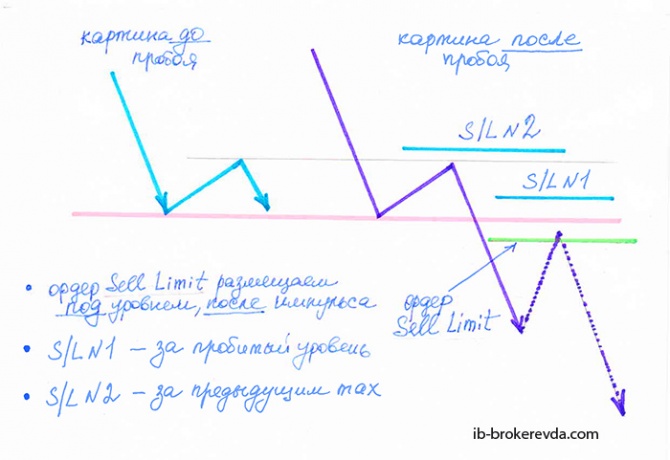 картина до
пробоя
картина после
пробоя
S/L N2
S/L N1
• ордер Sell Limit размещаем
под уровнем, после импульса
• S/L N1 – за пробитый уровень
• S/L N2 – за предыдущим max
ордер
Sell Limit
ib-brokerevda.com